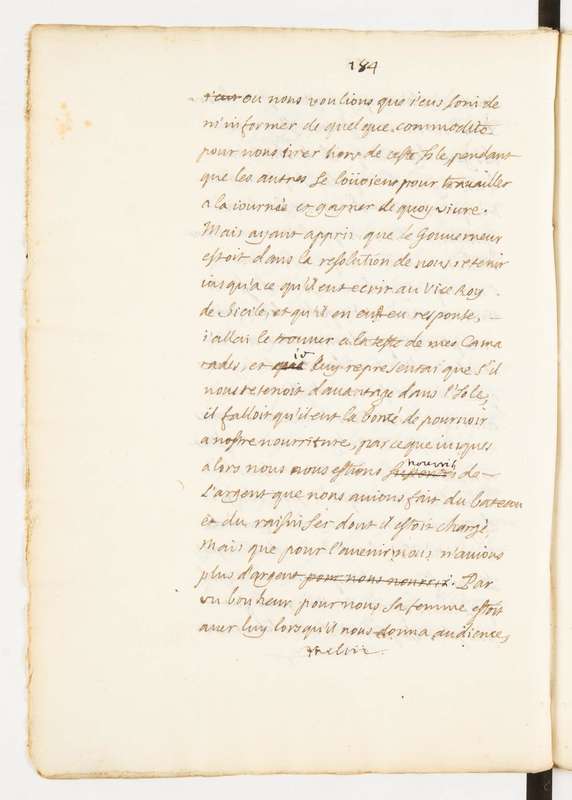 184
ou nous voulions que i'eus soni de
m'informer de quelque commodité
pour nous tirer hors de ceste Isle, pendant
que les autres se loüoient pour travailler
a la iournée et gagner de quoy vivre.
Mais ayant appris que le Gouverneur
estoit dans la resolution de nous retenir
iusqu'a ce qu'il eut ecrit au Vice Roy
de Sicile, et qu'il en eut eu responte,
i'allai le trouner a la teste de mes Cama
rades, et io luy representai que s'il
nous retenoit davantage dans l'Isle,
il falloit qu'il eut la bonté de pournoir
a nostre nourriture, parceque iusques
a lors nous nous estions nourris de
L'argent que nous auions fait du bateau
et du raisin sec dont il estoit chargé,
Mais que pour l'auenir nous n'auions
plus d'argent pour nous nourrir. Par
un bonheur pour nous sa femme estoit
auec luy lorsqu'il nous donna audience,